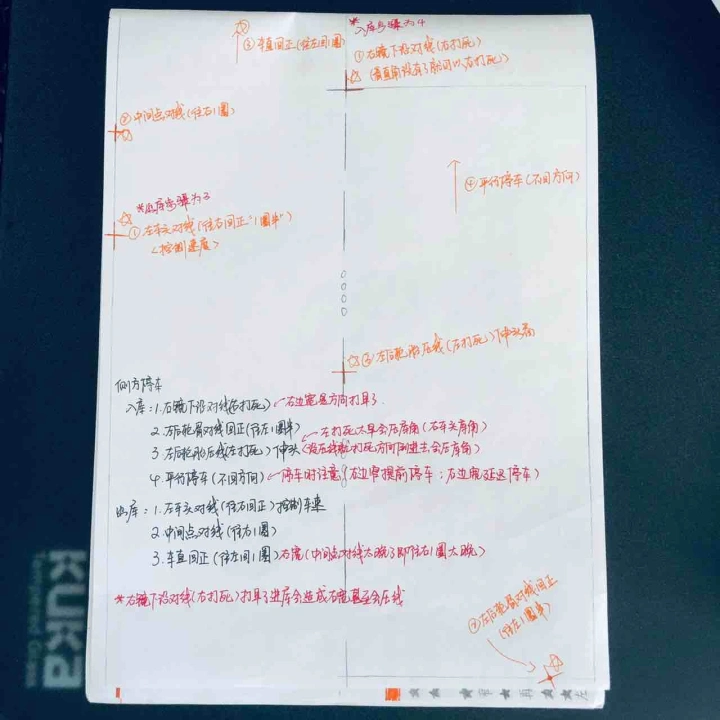 ③车直回正(往左回1圈)
*入库步骤为4
①右镜下沿对线(右打死)
(看直角没有了就可以右打死)
②中间点对线(往右1圈)
④平行停车(不回方向)
*出库步骤为3
①左车头对线(往右回正"1圈半")
<控制速度>
③左后轮刚压线(左打死)伸头看
侧方停车
入库:1.右镜下沿对线(右打死)右边宽是方向打早了.
2.左后轮胃对线回正(往左1圈半)
3.左后轮刚压线(左打死)伸头 左打死太早会压库角(右车头库角)
4.平行停车(不回方向)停车时注意(右边窄提前停车;右边宽延迟停车)
出库:1.左车头对线(往右回正)控制车速
2.中间点对线(往右1圈)
3.车直回正(往左回1圈)右宽(中间点对线太晚了即往右1圈太晚)
*右镜下沿对线(右打死)打早了进库会造成右宽甚至会压线
②左后轮胃对线回正
(往左1圈半)
KUKa
Tempered Glass